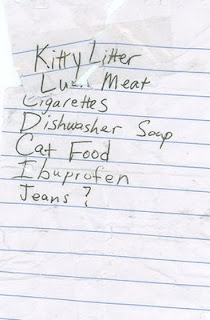 Kitty Litter
Meat
Cigarettes
Dishwasher Soap
Cat Food
Ibuprofen
Jeans ?